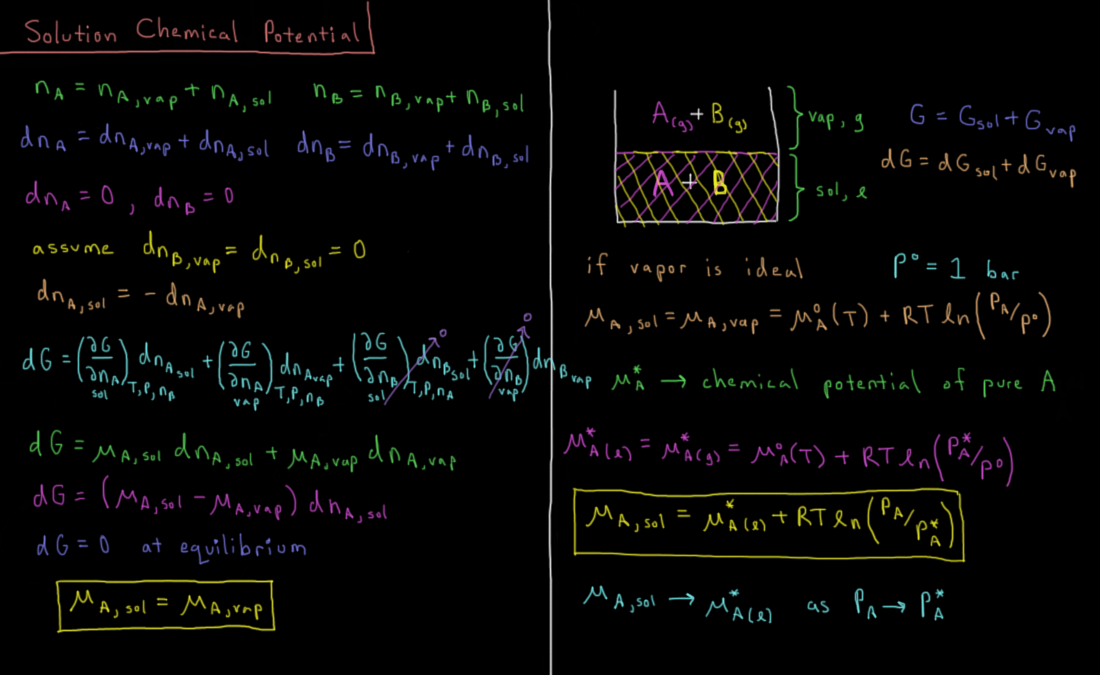 Solution Chemical Potential
n_A = n_A,vap + n_A,sol   n_B = n_B,vap + n_B,sol
dn_A = dn_A,vap + dn_A,sol   dn_B = dn_B,vap + dn_B,sol
dn_A = 0 , dn_B = 0
assume dn_B,vap = dn_B,sol = 0
dn_A,sol = - dn_A,vap
dG = (∂G/∂n_A sol)_T,P,n_B dn_A sol + (∂G/∂n_A vap)_T,P,n_B dn_A vap + (∂G/∂n_B sol)_T,P,n_A dn_B sol →0 + (∂G/∂n_B vap) dn_B vap →0
dG = μ_A,sol dn_A,sol + μ_A,vap dn_A,vap
dG = (μ_A,sol - μ_A,vap) dn_A,sol
dG = 0 at equilibrium
μ_A,sol = μ_A,vap
A(g) + B(g)
vap, g
A + B
sol, ℓ
G = G_sol + G_vap
dG = dG_sol + dG_vap
if vapor is ideal   P° = 1 bar
μ_A,sol = μ_A,vap = μ_A°(T) + RT ln(P_A/P°)
μ_A* → chemical potential of pure A
μ_A(ℓ)* = μ_A(g)* = μ_A°(T) + RT ln(P_A*/P°)
μ_A,sol = μ_A(ℓ)* + RT ln(P_A/P_A*)
μ_A,sol → μ_A(ℓ)* as P_A → P_A*